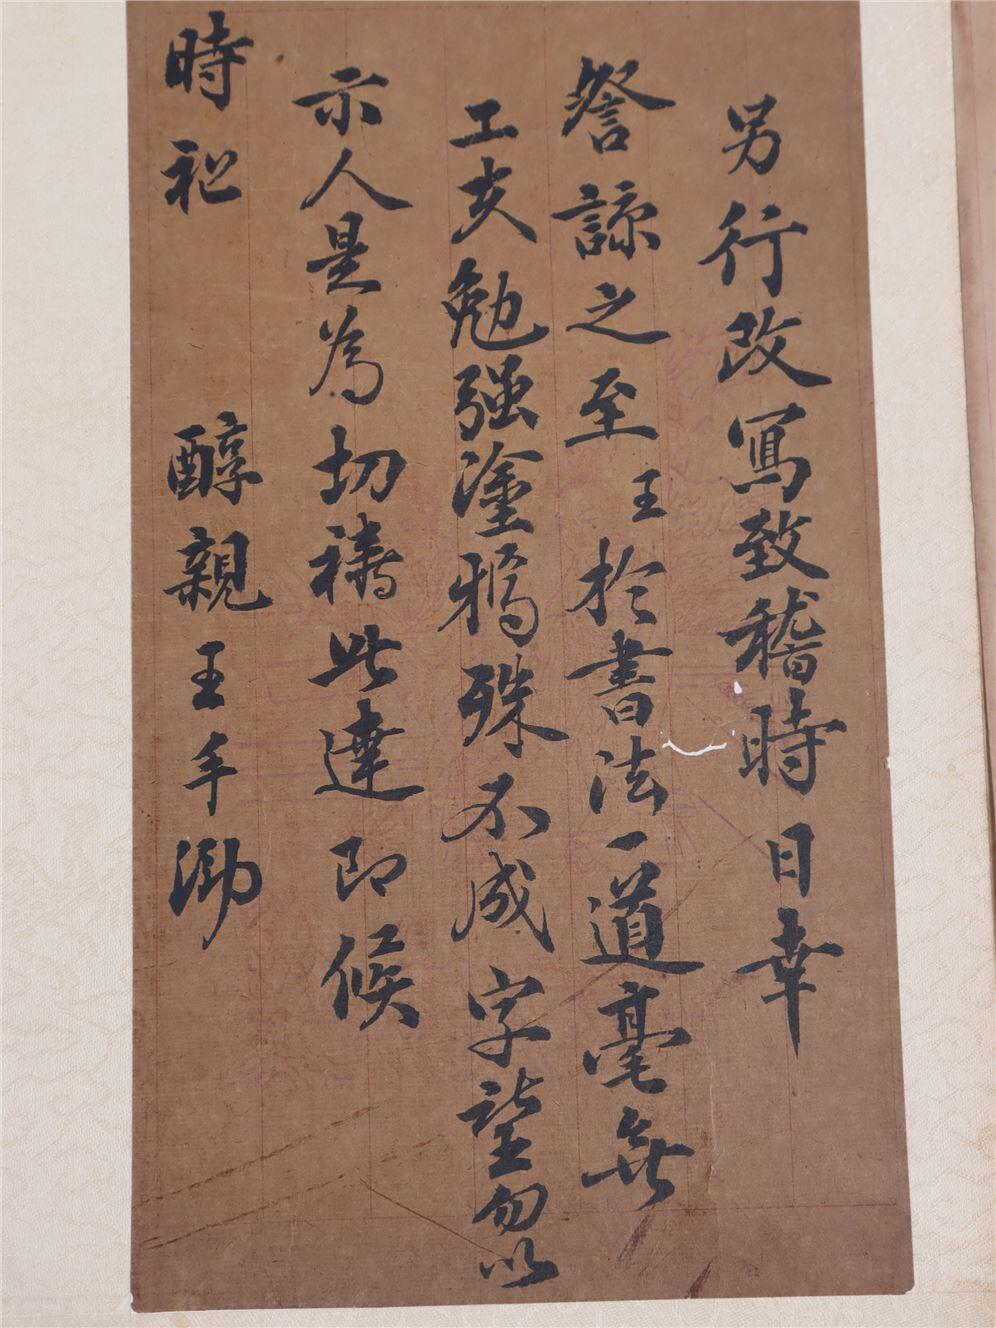 另行改寫致稽時日幸
詧諒之至王於書法一道毫無
工夫勉强塗鴉殊不成字望勿以
示人是為切禱此達即候
時祉 醇親王手泐